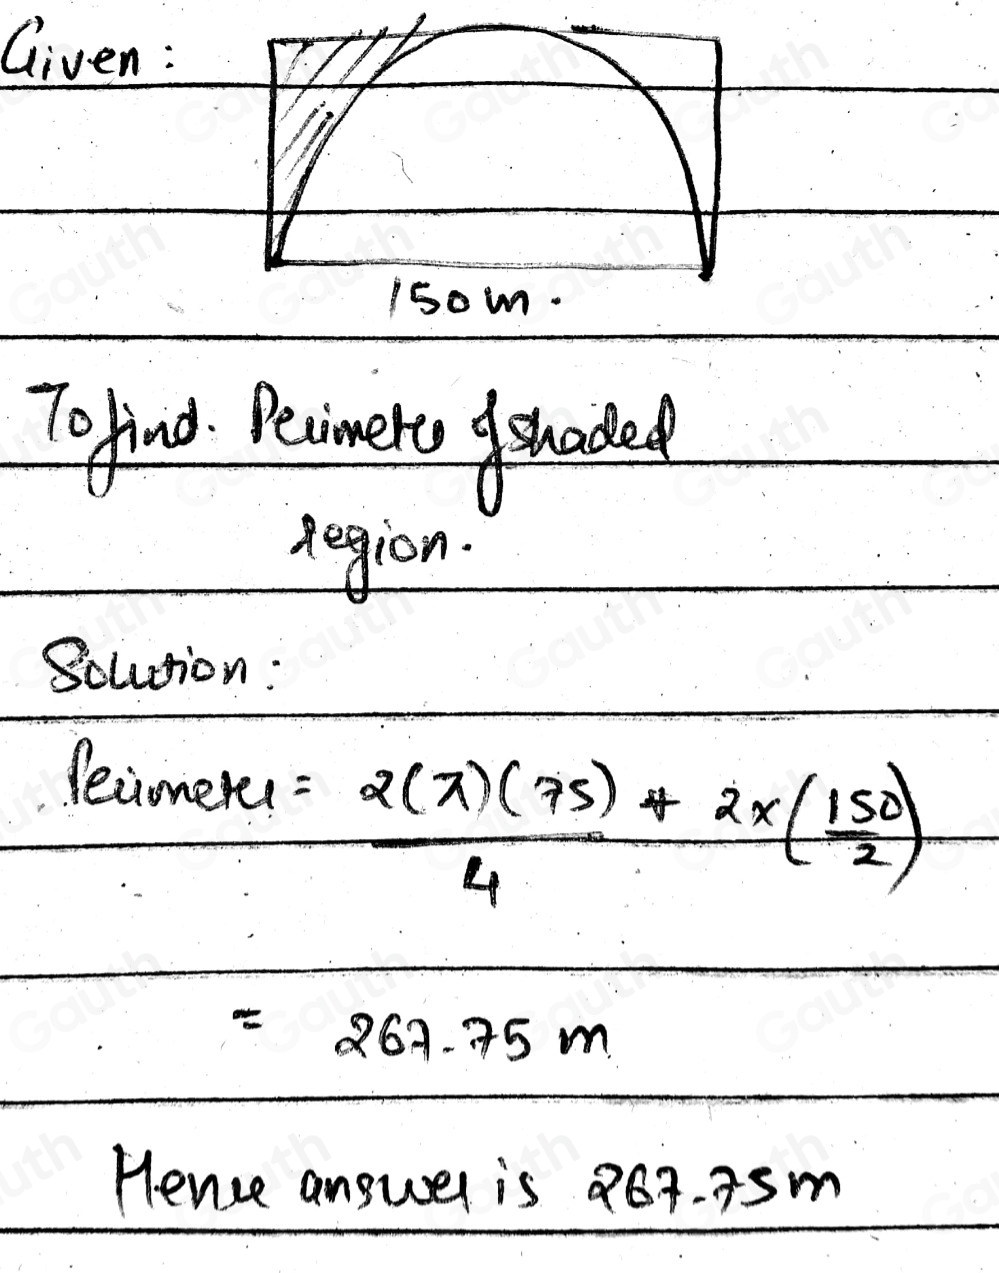 Given:
150m.
To find. Perimeter of shaded
region.
Solution:
Perimeter = 2(π)(75)/4 + 2×(150/2)
= 267.75 m
Hence answer is 267.75m